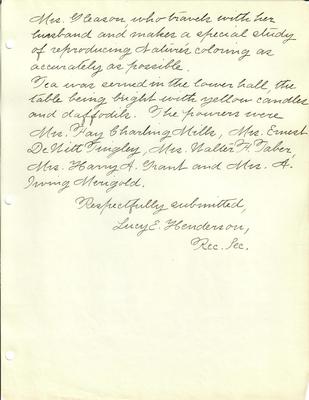 Mrs. Gleason who travels with her
husband and makes a special study
of reproducing Nature's coloring as
accurately as possible.
Tea was served in the lower hall, the
table being bright with yellow candles
and daffodils. The pourers were
Mrs. Fay Mills, Mrs. Ernest
DeWitt Tingley, Mrs. Walter F. Taber
Mrs. Harry A. Grant and Mrs. A.
Irving Merigold.
Respectfully submitted,
Lucy E. Henderson,
Rec. Sec.